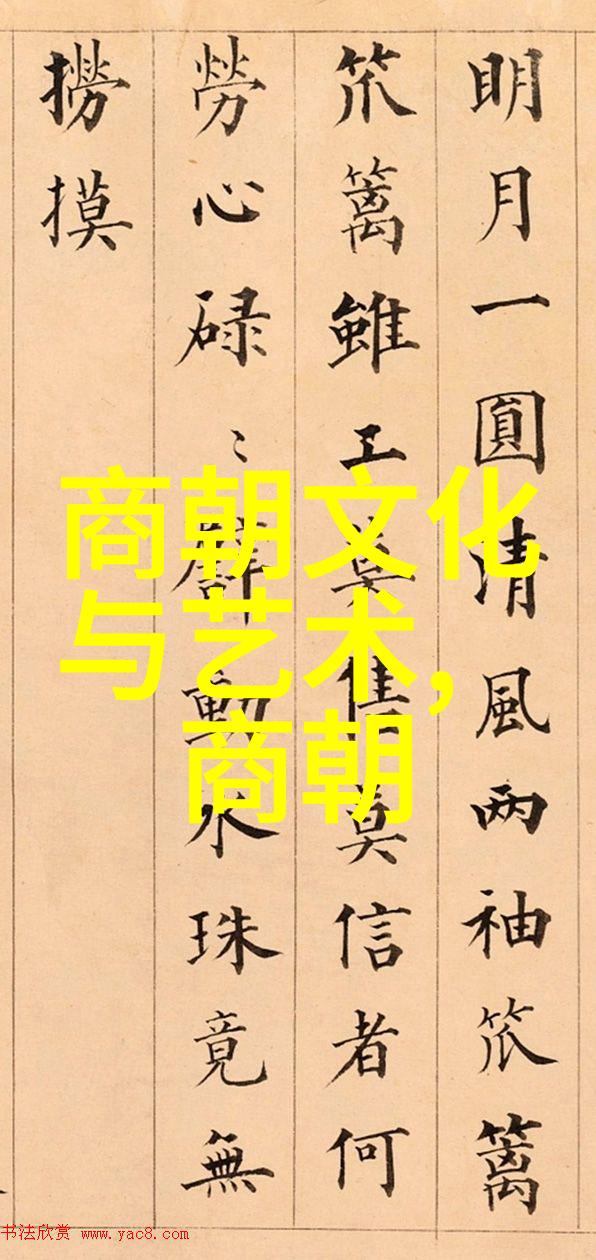 明月一圓清風两袖笊篱
笊篱雖工莫售莫信者何
勞心碌〻動水珠竟無
撈摸
商朝文化
与艺术,
商朝
书法欣赏 www.yac8.com